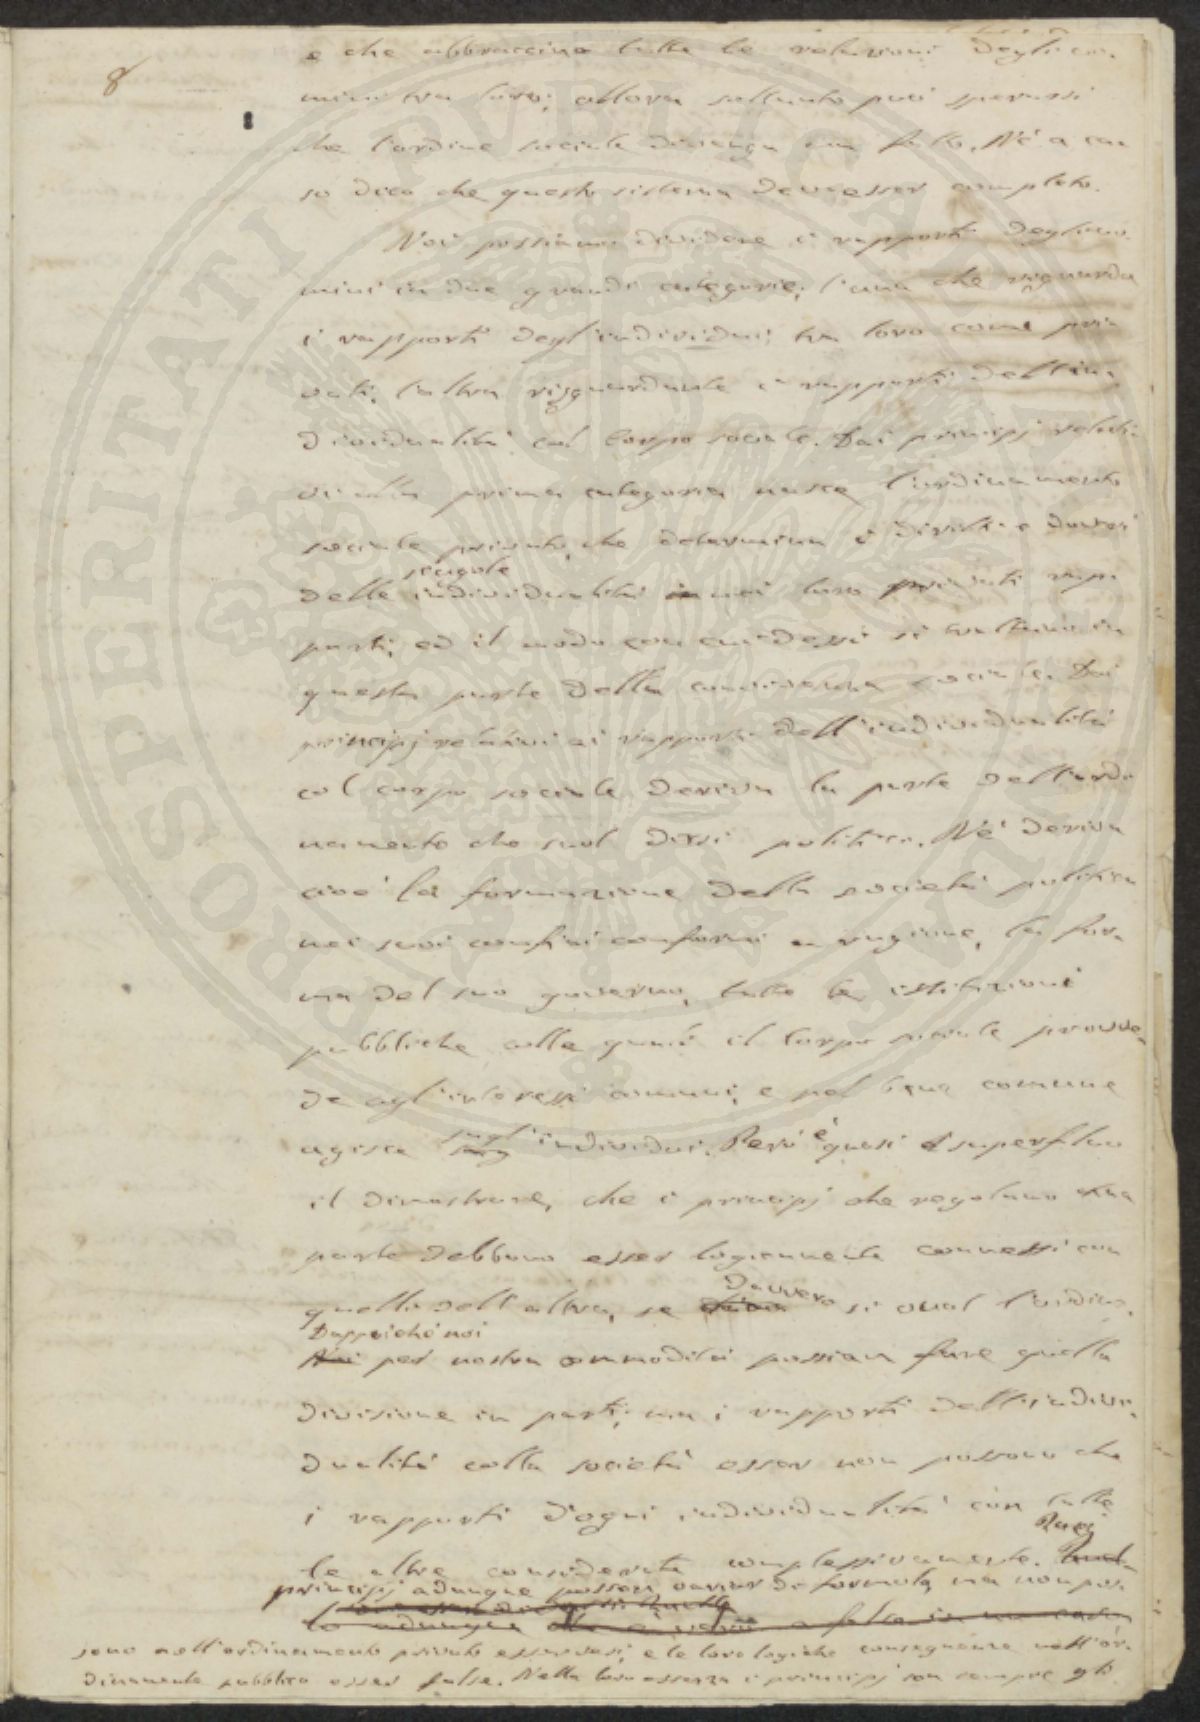 8
e che abbraccino tutte le relazioni degli uo-
mini tra loro; allora soltanto può sperarsi
che l'ordine sociale divenga un fatto. Né a ca-
so dico che questo sistema dev'esser completo.
Noi possiamo dividere i rapporti degli uo-
mini in due grandi categorie; l'una che risguarda
i rapporti degl'individui tra loro come pri-
vati; l'altra risguardante i rapporti dell'in-
dividualità col corpo sociale. Dai principj relati-
vi alla prima categoria nasce l'ordinamento
sociale privato, che determina i diritti e doveri
singole
delle individualità nei loro privati rap-
porti, ed il modo con cui dessi si trattano in
questa parte della convivenza sociale. Dai
principj relativi ai rapporti dell'individualità
col corpo sociale deriva la parte dell'ordi-
namento che suol dirsi politico. Né deriva
cioè la formazione della società politica
nei suoi confini conformi a ragione, la for-
ma del suo governo, tutte le istituzioni
pubbliche colle quali il corpo sociale provve-
de agl'interessi comuni, e pel bene comune
agisce sugl'individui. Però è quasi superfluo
il dimostrare, che i principj che regolano una
parte debbono esser logicamente connessi con
davvero
quelli dell'altra, se si vuol l'ordine.
Dappoiché noi
per nostra commodità possiam fare quella
divisione in parti; ma i rapporti dell'indivi-
dualità colla società esser non possono che
i rapporti d'ogni individualità con tutte
le altre considerate complessivamente.
principj adunque possono variar di formola, ma non pos-
sono nell'ordinamento privato esser veri, e le loro logiche conseguenze nell'or-
dinamento pubblico esser false. Nella loro essenza i principj son sempre gli